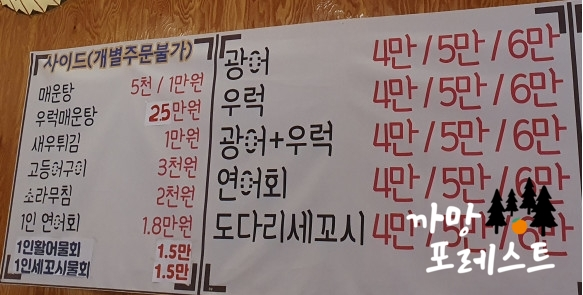 사이드(개별주문불가)
매운탕 5천 / 1만원
우럭매운탕 2.5만원
새우튀김 1만원
고등어구이 3천원
소라무침 2천원
1인 연어회 1.8만원
1인활어물회 1.5만
1인세꼬시물회 1.5만
광어 4만 / 5만 / 6만
우럭 4만 / 5만 / 6만
광어+우럭 4만 / 5만 / 6만
연어회 4만 / 5만 / 6만
도다리세꼬시 4만 / 5만 / 6만
까망
포레스트